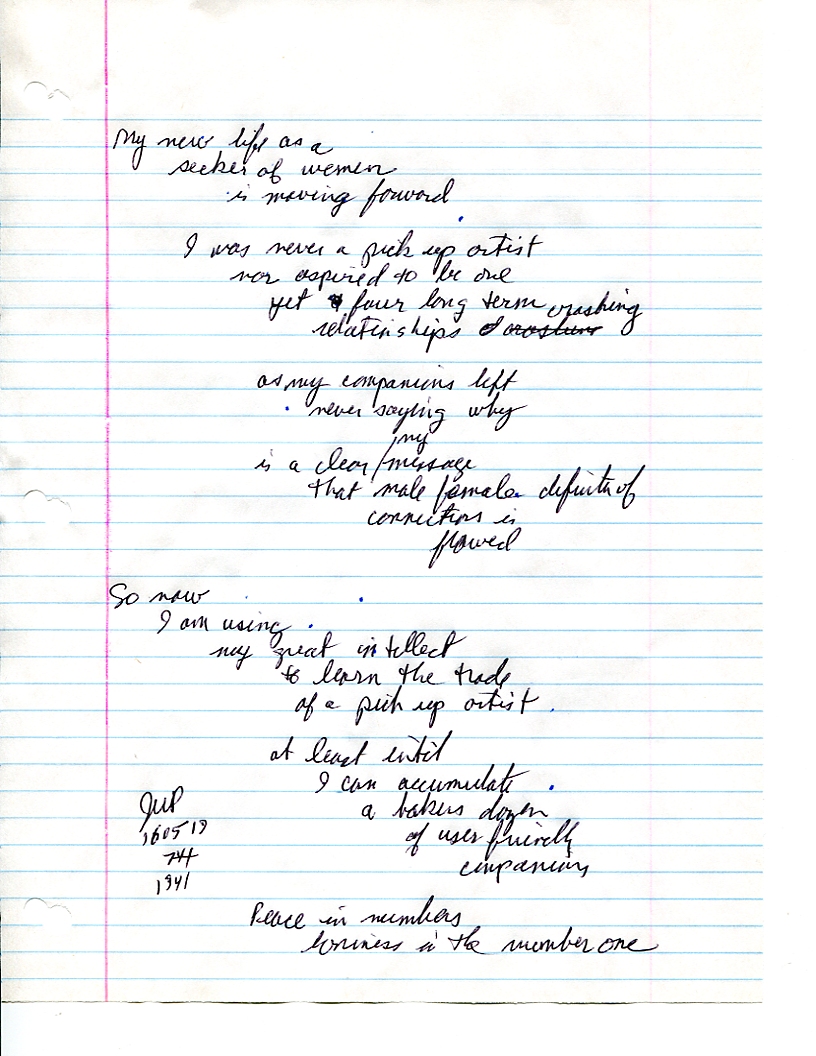 My new life as a
seeker of women
is moving forward
I was never a pick up artist
nor aspired to be one
yet four long term crashing
relatinships
as my companions left
never saying why
my
is a clear / message
that male female definitn of
connections is
flawed
So now
I am using
my great intellect
to learn the trade
of a pick up artist.
at least until
I can accumulate
a bakers dozen
of user friendly
companions
JWP
160519
1941
Peace in numbers
loniness is the number one